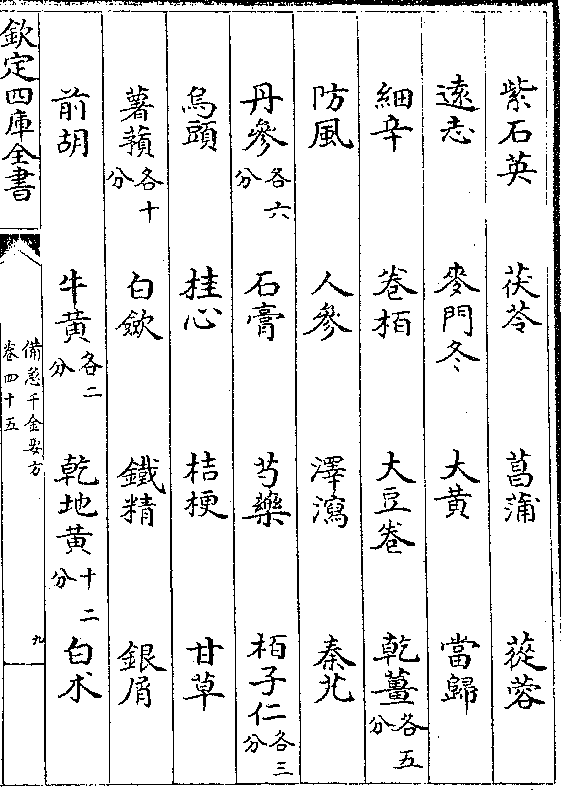 紫石英 茯苓 菖蒲 蓯蓉
遠志 麥門冬 大黃 當歸
細辛 卷栢 大豆卷 乾薑各五分
防風 人參 澤瀉 秦艽
丹參各六分 石膏 芍藥 栢子仁各三分
烏頭 桂心 桔梗 甘草
薯蕷各十分 白蘞 鐵精 銀屑
前胡 牛黃各二分 乾地黃十二分 白术
欽定四庫全書
備急千金要方
卷四十五
九